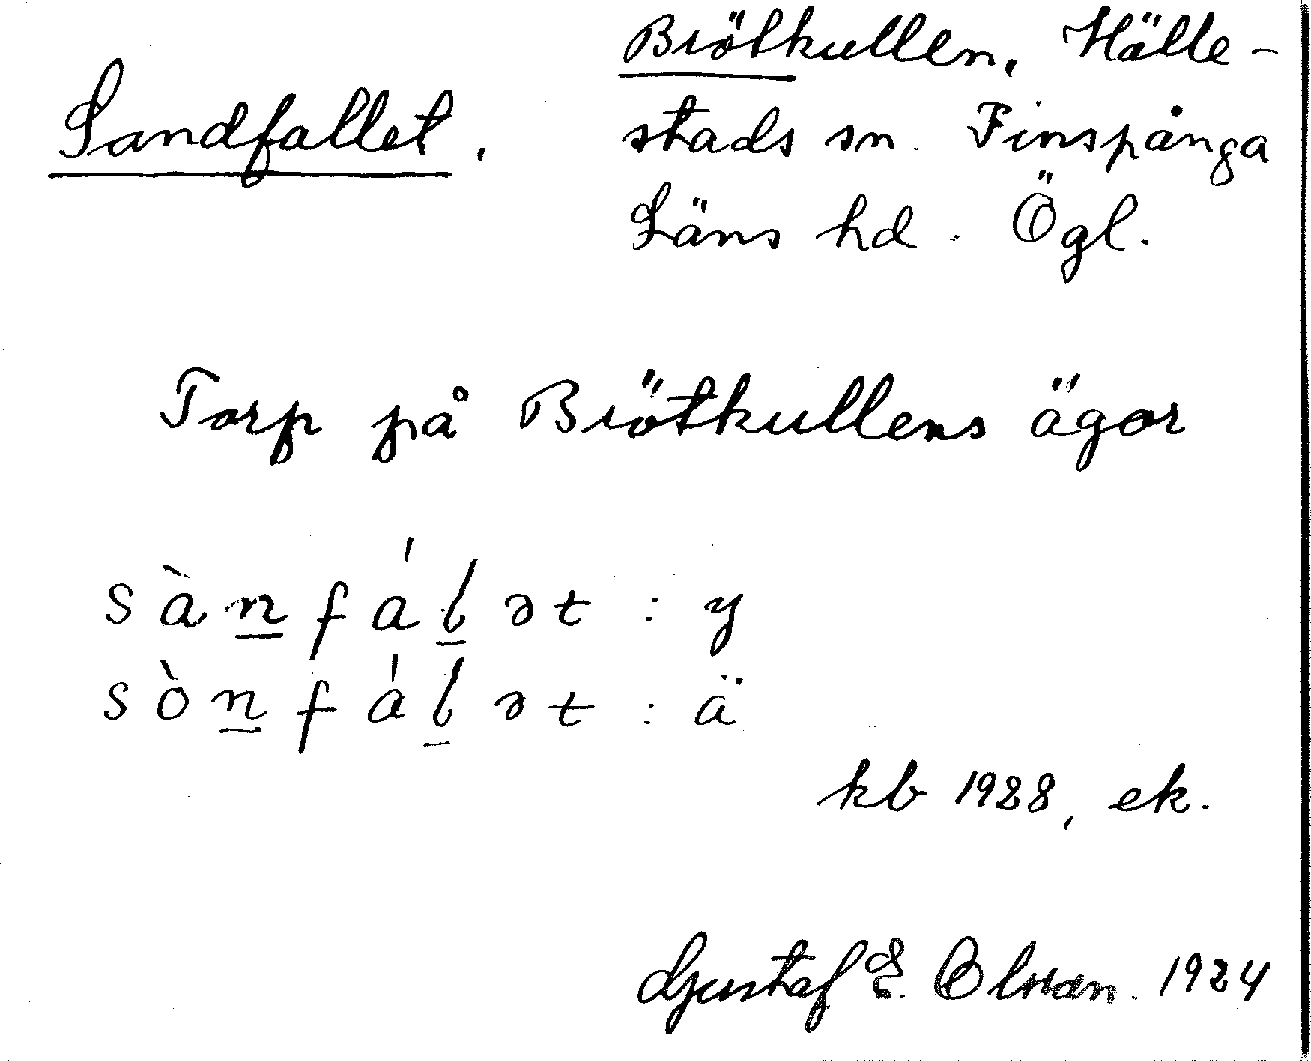 Sandfallet.
Brötkullen, Hälle-
stads sn. Finspånga
Läns hd. Ögl.
Torp på Brötkullens ägor
sàn̲fál̲ət : y
sòn̲fál̲ət : ä
kb 1928, ek.
Gustaf E. Olsson. 1924